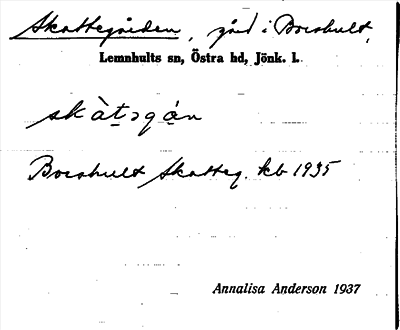 Skattegården, gård i Boeshult,
Lemnhults sn, Östra hd, Jönk. l.
skàt̠ǝgá̠n
Boeshult Skatteg. kb 1935
Annalisa Anderson 1937